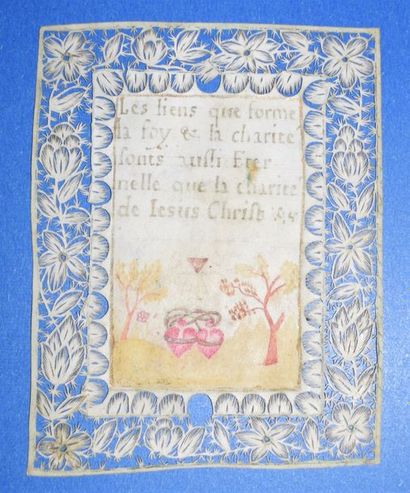 Les liens que forme
la foy & la charite
sonts aussi Eter
nelle que la charite
de Iesus Christ &c